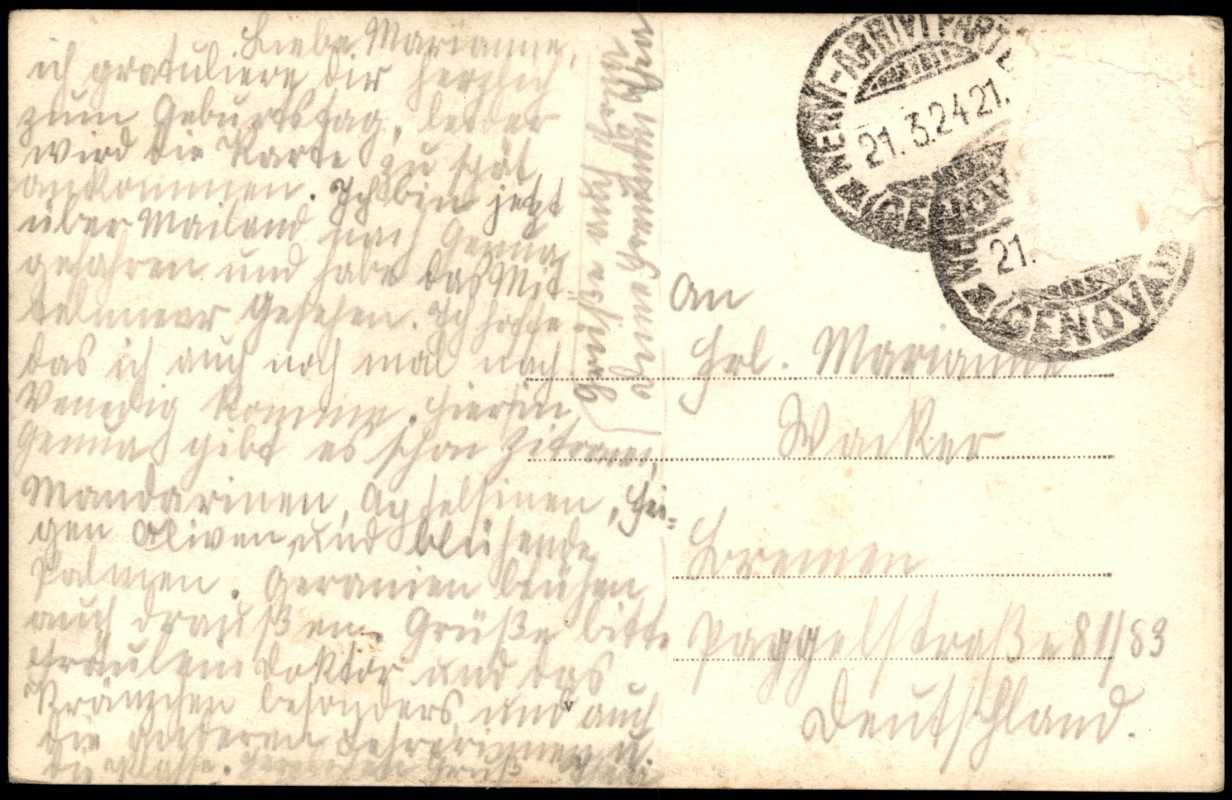 Liebe Marianne,
ich gratuliere dir herzlich
zum Geburtstag, leider
wird die Karte zu spät
ankommen. Ich bin jetzt
über Mailand nach Genua
gefahren und habe das Mit=
telmeer Gesehen. Ich hoffe
das ich auch noch mal nach
Venedig komme. Hier in
Genua gibt es schon Zitronen,
Mandarinen, Apfelsinen, Fei=
gen Oliven und blühende
Palmen. Geranien blühen
auch draußen. Grüße bitte
Fräulein Doktor und das
Kränzchen besonders und auch
die anderen Lehrerinnen u.
die Klasse. Herzlichen Gruß
Grüße auch
Deine
An
Frl. Marianne
Walker
Bremen
Paggelstraße 81/83
Deutschland.
GENOVA
ARRIVI PART
21.3.24 21.
GENOVA
21.